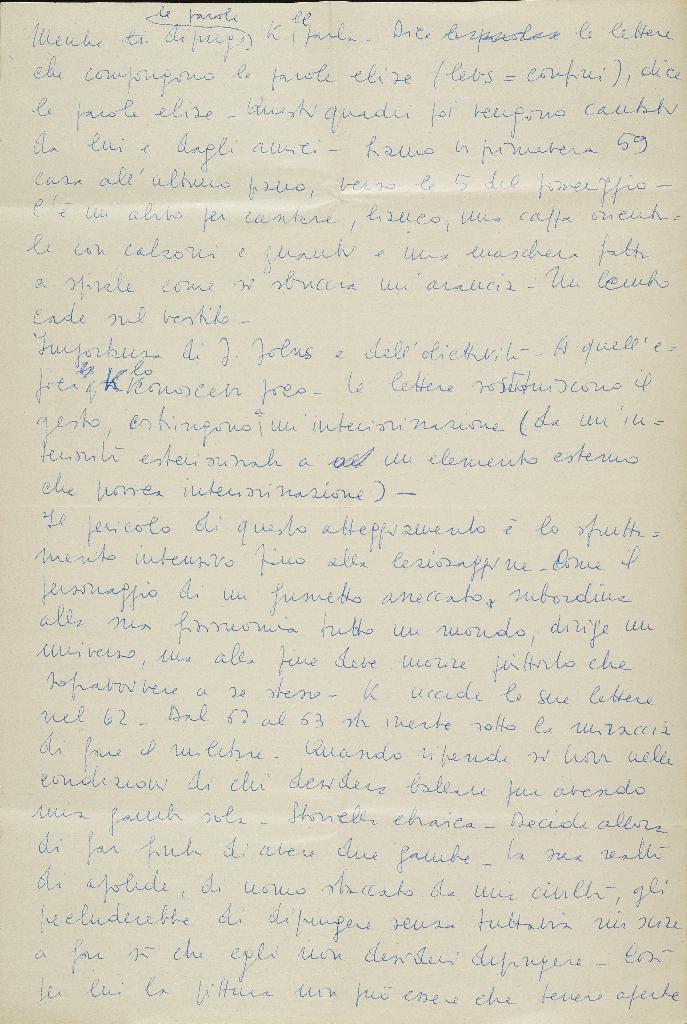 le parole
Mentre dipinge K. parla. Dice le lettere
che compongono le parole elise (levs = confini), dice
le parole elise - Questi quadri poi vengono cantati
da lui e dagli amici - Siamo in primavera 59
casa all'ultimo piano, verso le 5 del pomeriggio -
C'è un abito per cantare, bianco, una cappa orienta=
le con calzoni e guanti e una maschera fatta
a spirale come si sbuccia un'arancia - Un lembo
cade sul vestito -
Importanza di J. Johns e dell'obiettività - A quell'e=
poca K lo conosceva poco - Le lettere sostituiscono il
gesto, costringono a un'interiorizzazione (da un'in=
teriorità esteriorizzata a un elemento esterno
che provoca interiorizzazione) -
Il pericolo di questo atteggiamento è lo sfrutta=
mento intensivo fino alla leziosaggine - Come il
personaggio di un fumetto azzeccato, subordina
alla sua fisionomia tutto un mondo, dirige un
universo, ma alla fine deve morire piuttosto che
sopravvivere a se stesso - K. uccide le sue lettere
nel 62 - Dal 62 al 63 sta inerte sotto la minaccia
di fare il militare - Quando riprende si trova nelle
condizioni di chi desidera ballare pur avendo
una gamba sola - Storiella ebraica - Decide allora
di far finta di avere due gambe - La sua realtà
di apolide, di uomo staccato da una civiltà, gli
precluderebbe di dipingere senza tuttavia riuscire
a far sì che egli non desideri dipingere - Così
per lui la pittura non può essere che tenere aperte